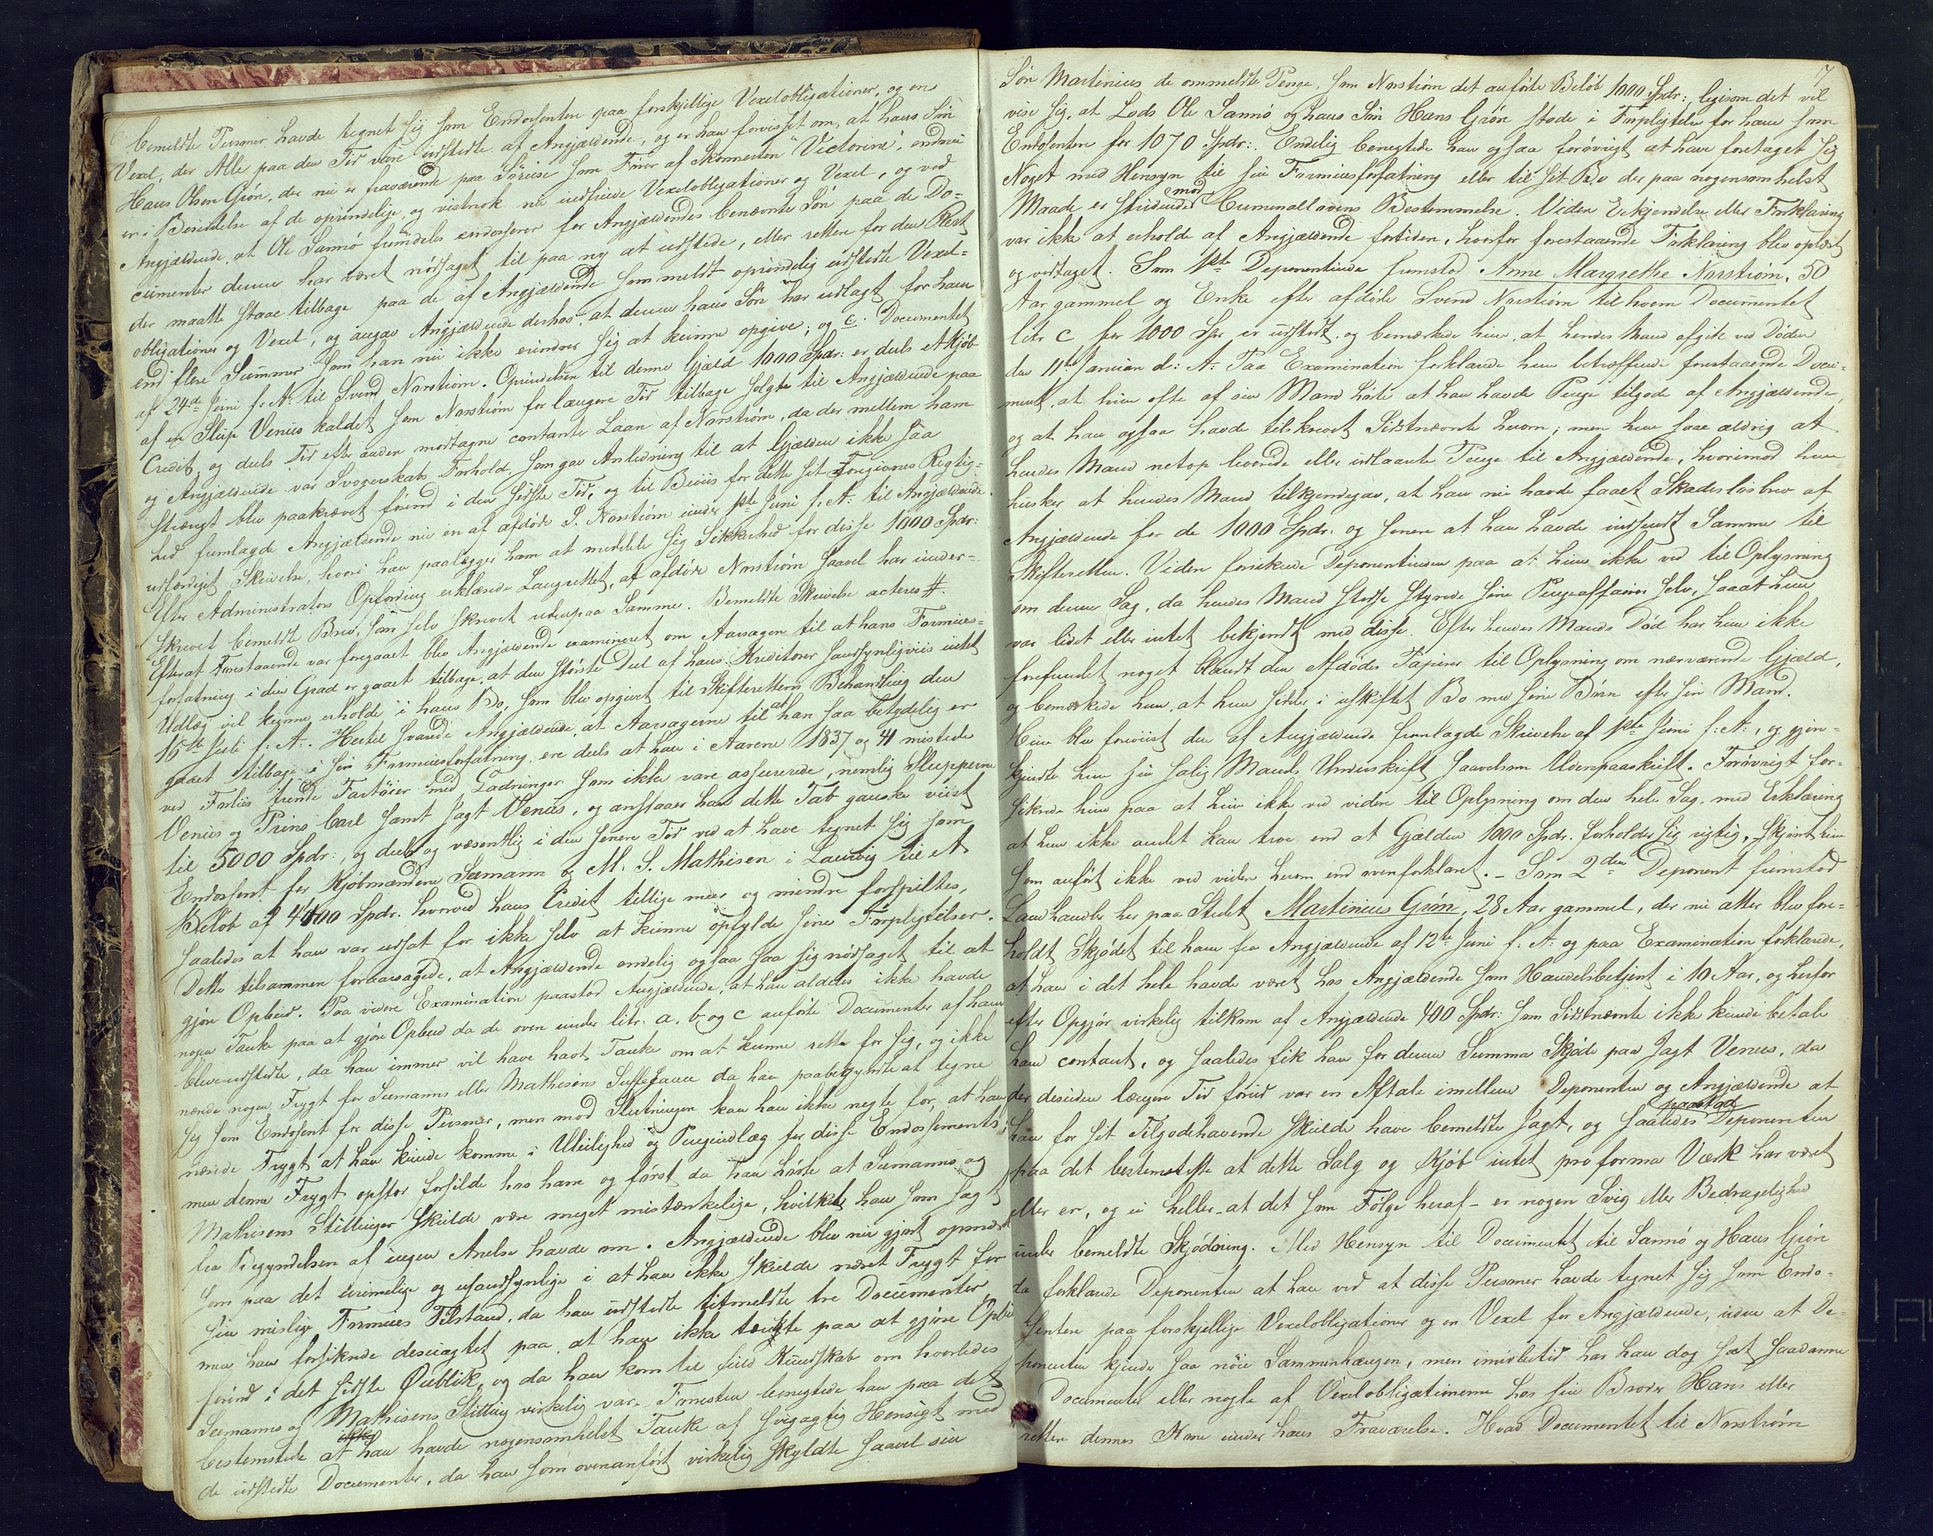 bemeldte Personer havde tegnet sig som Endossenter paa forskjellige Vexelobligationer, og en
Vexel, der Alle paa den Tid vare udstedte af Angjældende, og er han forvisset om, at hans Søn
Hans Olsen Grøn, der nu er fraværende paa Søreise som Fører af Skonnerten "Victorine", endnu
er i Besiddelse af de oprindelige og vistnok nu indfriede Vexelobligationer og Vexel, og ved
Angjældende, at Ole Sannø fremdeles endosserer for Angjældendes benævnte Søn paa de Do-
cumenter denne har været nødsaget til paa ny at udstede, eller retten for den Rest
der maatte staae tilbage paa de af Angjældende som meldt oprindelig udstedte Vexel-
obligationer og Vexel, og angav Angjældende derhos, at denne hans Søn har udlagt for ham
end flere Summer som han nu ikke erindrer sig at kunne opgive; og c. Documentet
af 24de Juni f: A: til Svend Norstrøm. Oprindelsen til denne Gjæld 1000 Spdr: er deels et Kjøb
af en Slup Venus kaldet som Norstrøm for længere Tid tilbage solgte til Angjældende paa
Credit, og deels Tid efter anden modtagne contante Laan af Norstrøm, da der mellem ham
og Angjældende var Svogerskabs Forhold, som gav Anledning til at Gjælden ikke saa
strængt blev paakrævet førend i den sidste Tid, og til Beviis for dette sit Forgivenes Rigtig-
hed fremlagde Angjældende nu en af afdøde S. Norstrøm under 1ste Juni f. A: til Angjældende
udfærdiget Skrivelse, hvori han paalægger ham at meddele sig Sikkerhed for disse 1000 Spdr:
Efter Administrators Opfordring erklærede Laugrettet, at afdøde Norstrøm saavel har under-
skrevet bemeldte Brev, som selv skrevet udenpaa Samme. Bemeldte Skrivelse acteres #.
Efterat Forestaaende var foregaaet blev Angjældende examineret om Aarsagen til at hans Formues-
forfatning i den Grad er gaaet tilbage, at den største Deel af hans Kreditorer sandsynligviis intet
Udlæg vil kunne erholde i hans Bo, som blev opgivet til Skifterettens Behandling den
15de Juli f: A:. Hertil svarede Angjældende, at Aarsagerne til at han saa betydelig er
gaaet tilbage i sin Formuesforfatning, ere deels at han i Aarene 1837 og 41 mistede
ved Forliis trende Fartøier med Ladninger som ikke vare assurerede, nemlig Slupperne
Venus og Prins Carl samt Jagt Venus, og ansaaer han dette Tab ganske viist
til 5000 Spdr:, og deels og væsentlig i den senere Tid ved at have tegnet sig som
Endossent for Kjøbmændene Seemann & M. S. Mathisen i Laurvig til et
Beløb af 4400 Spdr. hvorved hans Credit tillige meer og mindre forspiltes,
saaledes at han var udsat for ikke selv at kunne opfylde sine Forpligtelser.
Dette tilsammen foraarsagede, at Angjældende endelig ogsaa saa sig nødsaget til at
gjøre Opbud. Paa videre Examination paastod Angjældende, at han aldeles ikke havde
nogen Tanke paa at gjøre Opbud da de oven under litr. a, b og c anførte Documenter af ham
bleve udstedte, da han immer vil have havt Tanke om at kunne rette for sig, og ikke
nærede nogen Frygt for Seemanns eller Mathisens Suffisance da han paabegyndte at tegne
sig som Endossent for disse Personer, men mod Slutningen kan han ikke negte for, at han
nærede Frygt at han kunde komme i Uleilighed og Pengeudlæg for disse Endossements,
men denne Frygt opstod forsilde hos ham og først da han hørte at Seemanns og
Mathisens Stillinger skulde være meget mistænkelige, hvilket han som sagt
fra Begyndelsen af ingen Anelse havde om. Angjældende blev nu gjort opmærk-
som paa det urimelige og usandsynlige i at han ikke skulde næret Frygt for
sin mislige Formues Tilstand, da han udstedte titmeldte tre Documenter,
men han forsikrede desuagtet paa, at han ikke tænkte paa at gjøre Opbud
førend i det sidste Øieblik, og da han kom til fuld Kundskab om hvorledes
Seemanns og Mathisens Stilling virkelig var. Forresten benegtede han paa det
bestemteste at han havde nogensomhelst Tanke af svigagtig Hensigt med
de udstedte Documenter, da han som ovenanført virkelig skyldte saavel sin
7
Søn Martinius de ommeldte Penge, som Norstrøm det anførte Beløb 1000 Spdr:, ligesom det vil
vise sig, at Lods Ole Sannø og hans Søn Hans Grøn stode i Forpligtelse for ham som
Endossenter for 1070 Spdr:. Endelig benegtede han ogsaa forøvrigt at have foretaget sig
Noget med Hensyn til sin Formuesforfatning eller til sit Bo der paa nogensomhelst
Maade er stridende mod Criminallovens Bestemmelse. Viden Erkjendelse eller Forklaring
var ikke at erholde af Angjældende for tiden, hvorfor forestaaende Forklaring blev oplæst
og vedtaget. Som 1ste Deponentinde fremstod Anne Margrethe Norstrøm, 50
Aar gammel og Enke efter afdøde Svend Norstrøm til hvem Documentet
litr c for 1000 Spdr er udstedt, og bemærkede hun, at hendes Mand afgik ved Døden
den 11te Januar d: A: Paa Examination forklarede hun betræffende forestaaende Docu-
ment, at hun ofte af sin Mand hørte at han havde Penge tilgode af Angjældende,
og at han ogsaa havde tilskrevet Sidstnævnte herom; men hun saae aldrig at
hendes Mand netop leverede eller udlaante Penge til Angjældende, hvorimod hun
husker at hendes Mand tilkjendegav, at han nu havde faaet Skadesløsbrev af
Angjældende for de 1000 Spdr: og senere at han havde indsendt Samme til
Skifteretten. Viden forsikrede Deponentinden paa at hun ikke ved til Oplysning
om denne Sag, da hendes Mand stedse styrede sine Pengeaffairer selv, saa at hun
var lidet eller intet bekjendt med disse. Efter hendes Mands Død har hun ikke
forefundet noget blandt den Afdødes Papirer til Oplysning om nærværende Gjæld,
og bemærkede hun, at hun sidder i uskiftet Bo med sine Børn efter sin Mand.
Hun blev foreviist den af Angjældende fremlagde Skrivelse af 1ste Juni f: A:, og gjen-
kjendte hun sin salig Mands Underskrift saavelsom Udenpaaskrift. Forøvrigt for-
sikrede hun paa at hun ikke ved videre til Oplysning om den hele Sag, med Erklæring
at hun ikke andet kan troe end at Gjælden 1000 Spdr. forholder sig rigtig, skjønt hun
som anført ikke ved videre herom end ovenforklaret. – Som 2den Deponent fremstod
Landhandler her paa Stedet Martinius Grøn, 28 Aar gammel, der nu atter blev fore-
holdt Skjødet til ham fra Angjældende af 12te Juni f. A: og paa Examination forklarede,
at han i det hele havde været hos Angjældende som Handelsbetjent i 10 Aar, og herfor
efter Opgjør virkelig tilkom af Angjældende 400 Spdr: som Sidstnævnte ikke kunde betale
ham contant, og saaledes fik han for denne Summa Skjøde paa Jagt Venus, da
der desuden længere Tid forud var en Aftale imellem Deponenten og Angjældende at
han for sit Tilgodehavende skulde have bemeldte Jagt, og saaledes paastod Deponenten
paa det bestemteste at dette Salg og Kjøb intet pro forma Værk har været
eller er, og ei heller at det som Følge heraf – er nogen Svig eller Bedragelighed
under bemeldte Skjødning. Med Hensyn til Documentet til Sannø og Hans Grøn
da forklarede Deponenten at han ved at disse Personer havde tegnet sig som Endo-
senter paa forskjellige Vexelobligationer og en Vexel for Angjældende, uden at De-
ponenten kjender saa nøie Sammenhængen, men imidlertid har han dog seet saadanne
Documenter eller nogle af Vexelobligationerne hos sin Broder Hans eller
rettere dennes Kone under hans Fraværelse. Hvad Documentet til Norstrøm